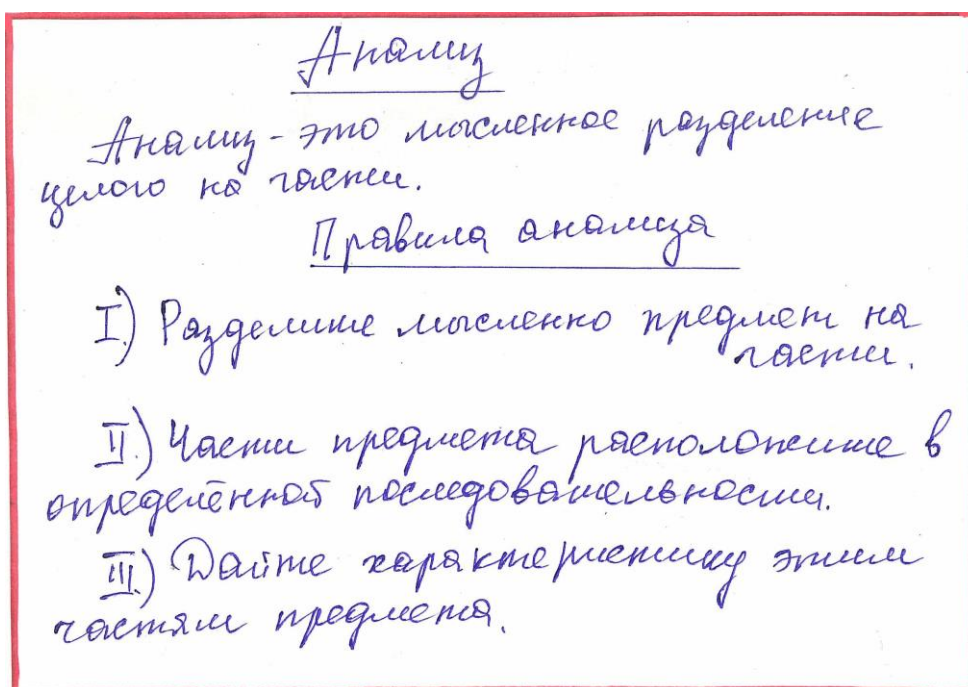 Анализ
Анализ - это мысленное разделение
целого на части.
Правила анализа
I.) Разделите мысленно предмет на
части.
II.) Части предмета расположите в
определённой последовательности.
III.) Дайте характеристику этим
частям предмета.